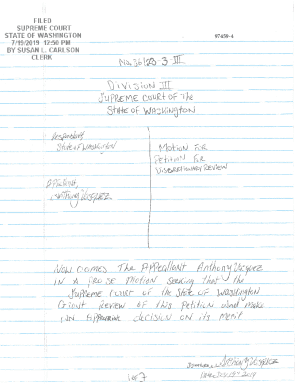 FILED
SUPREME COURT
STATE OF WASHINGTON
7/15/2019 12:50 PM
BY SUSAN L. CARLSON
CLERK
97439-4
No. 36123-3 III
Division III
Supreme Court of the
State of Washington
Respondent,
State of Washington
Appellant,
Anthony Vasquez
Motion For
Petition For
Discretionary Review
Now Comes The Appeallant Anthony Vasquez
in a pro se motion seeking that the
Supreme Court of the State of Washington
Court review of this petition and make
in decision on its merit
1 of 7